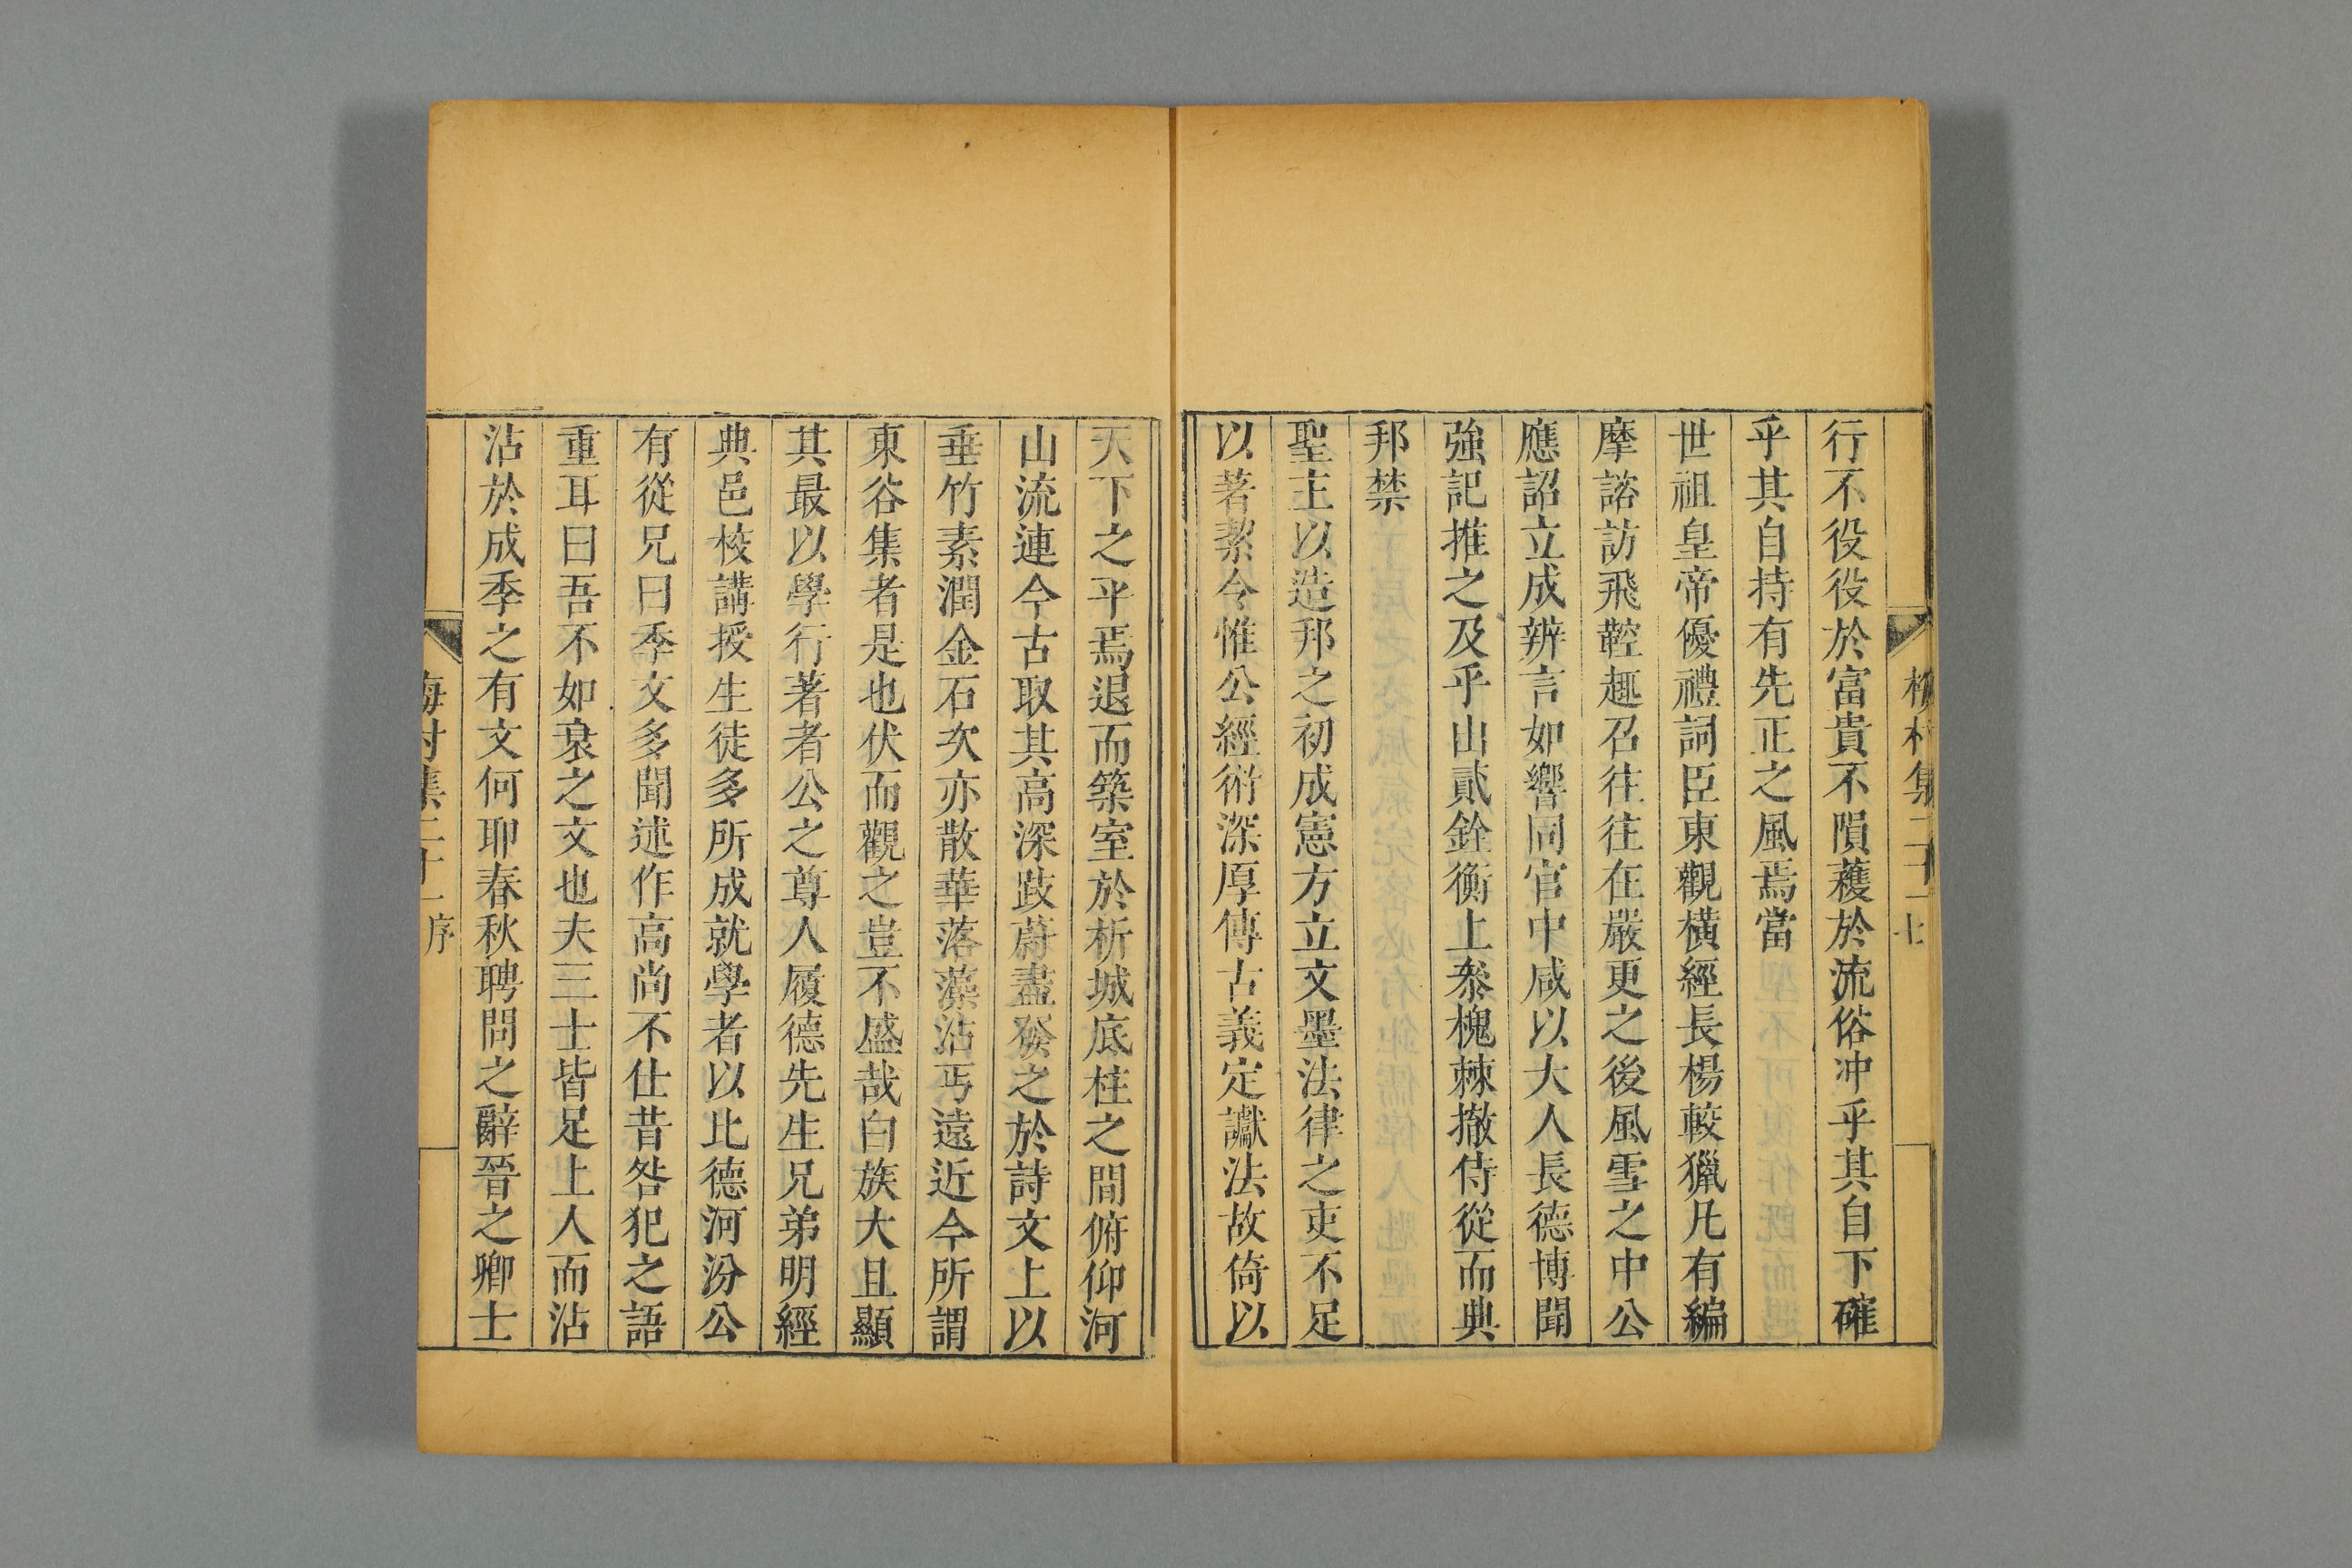 行不役役於富貴不隕穫於流俗冲乎其自下確
乎其自持有先正之風焉當
世祖皇帝優禮詞臣東觀橫經長楊較獵凡有編
摩諮訪飛鞚趣召往往在嚴更之後風雪之中公
應詔立成辨言如響同官中咸以大人長德博聞
強記推之及乎山貳銓衡上叅槐棘撤侍從而典
邦禁
聖主以造邦之初成憲方立文墨法律之吏不足
以著絜令惟公經術深厚傅古義定讞法故倚以
天下之平焉退而築室於析城底柱之間俯仰河
山流連今古取其高深跂蔚盡發之於詩文上以
垂竹素潤金石次亦散華落藻沾丐遠近今所謂
東谷集者是也伏而觀之豈不盛哉白族大且顯
其最以學行著者公之尊人履德先生兄弟明經
典邑校講授生徒多所成就學者以比德河汾公
有從兄曰季文多聞述作高尚不仕昔咎犯之語
重耳曰吾不如衰之文也夫三士皆足上人而沾
沾於成季之有文何耶春秋聘問之辭晉之卿士
梅村集二十一序